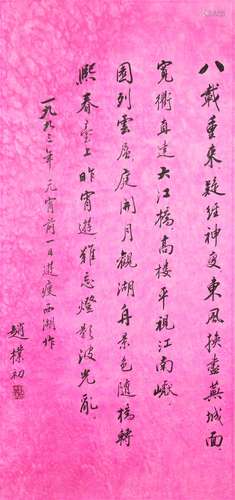 八載重來疑經神变東風换盡蕪城面
寬衢直達大江橋高樓平視江南巘
園列雲屏庭開月觀湖舟景色隨橋轉
熙春臺上昨宵遊難忘燈影波光亂
一九九三年元宵前一日遊瘦西湖作
趙樸初